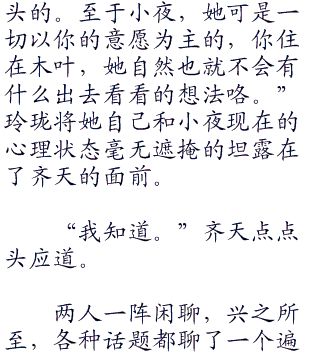 头的。至于小夜，她可是一
切以你的意愿为主的，你住
在木叶，她自然也就不会有
什么出去看看的想法咯。”
玲珑将她自己和小夜现在的
心理状态毫无遮掩的坦露在
了齐天的面前。
“我知道。”齐天点点
头应道。
两人一阵闲聊，兴之所
至，各种话题都聊了一个遍